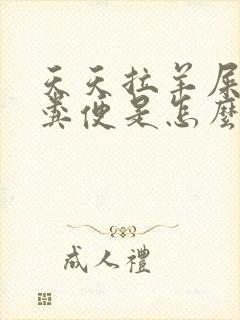 天天拉羊屎
糞便是怎麼
成人禮